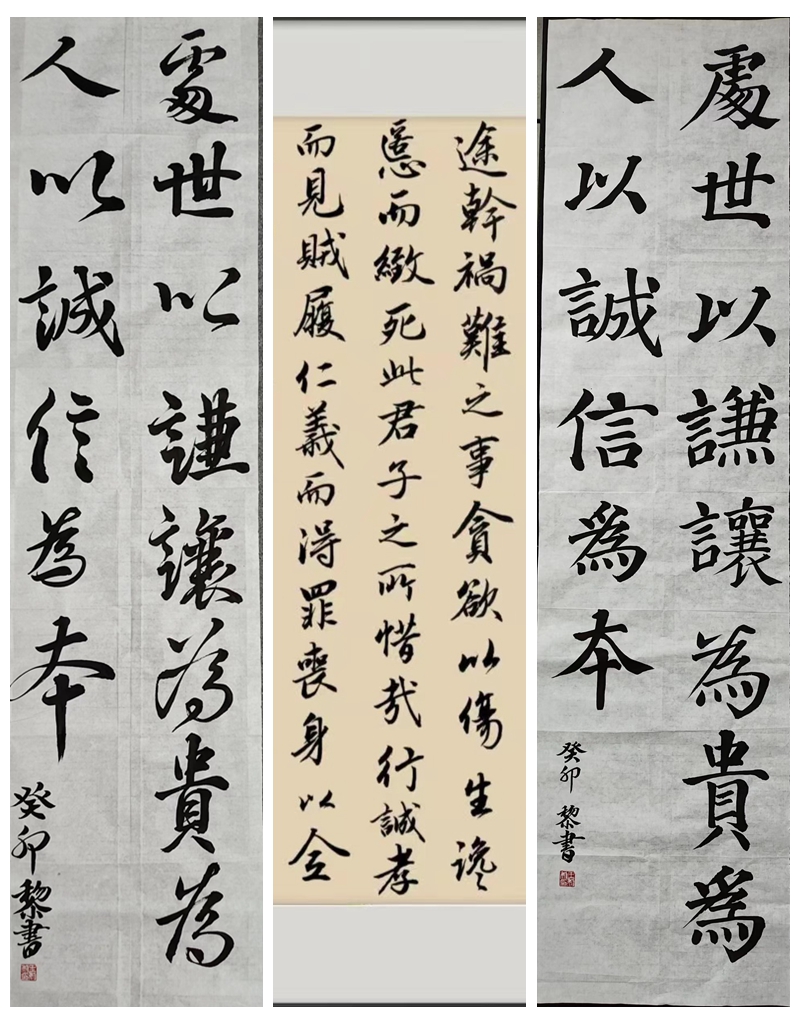 處世以謙讓為貴為
人以誠信為本
癸卯 黎書
途幹禍難之事貪欲以傷生讒
慝而緻死此君子之所惜哉行誠孝
而見賊履仁義而得罪喪身以全
處世以謙讓為貴為
人以誠信為本
癸卯 黎書